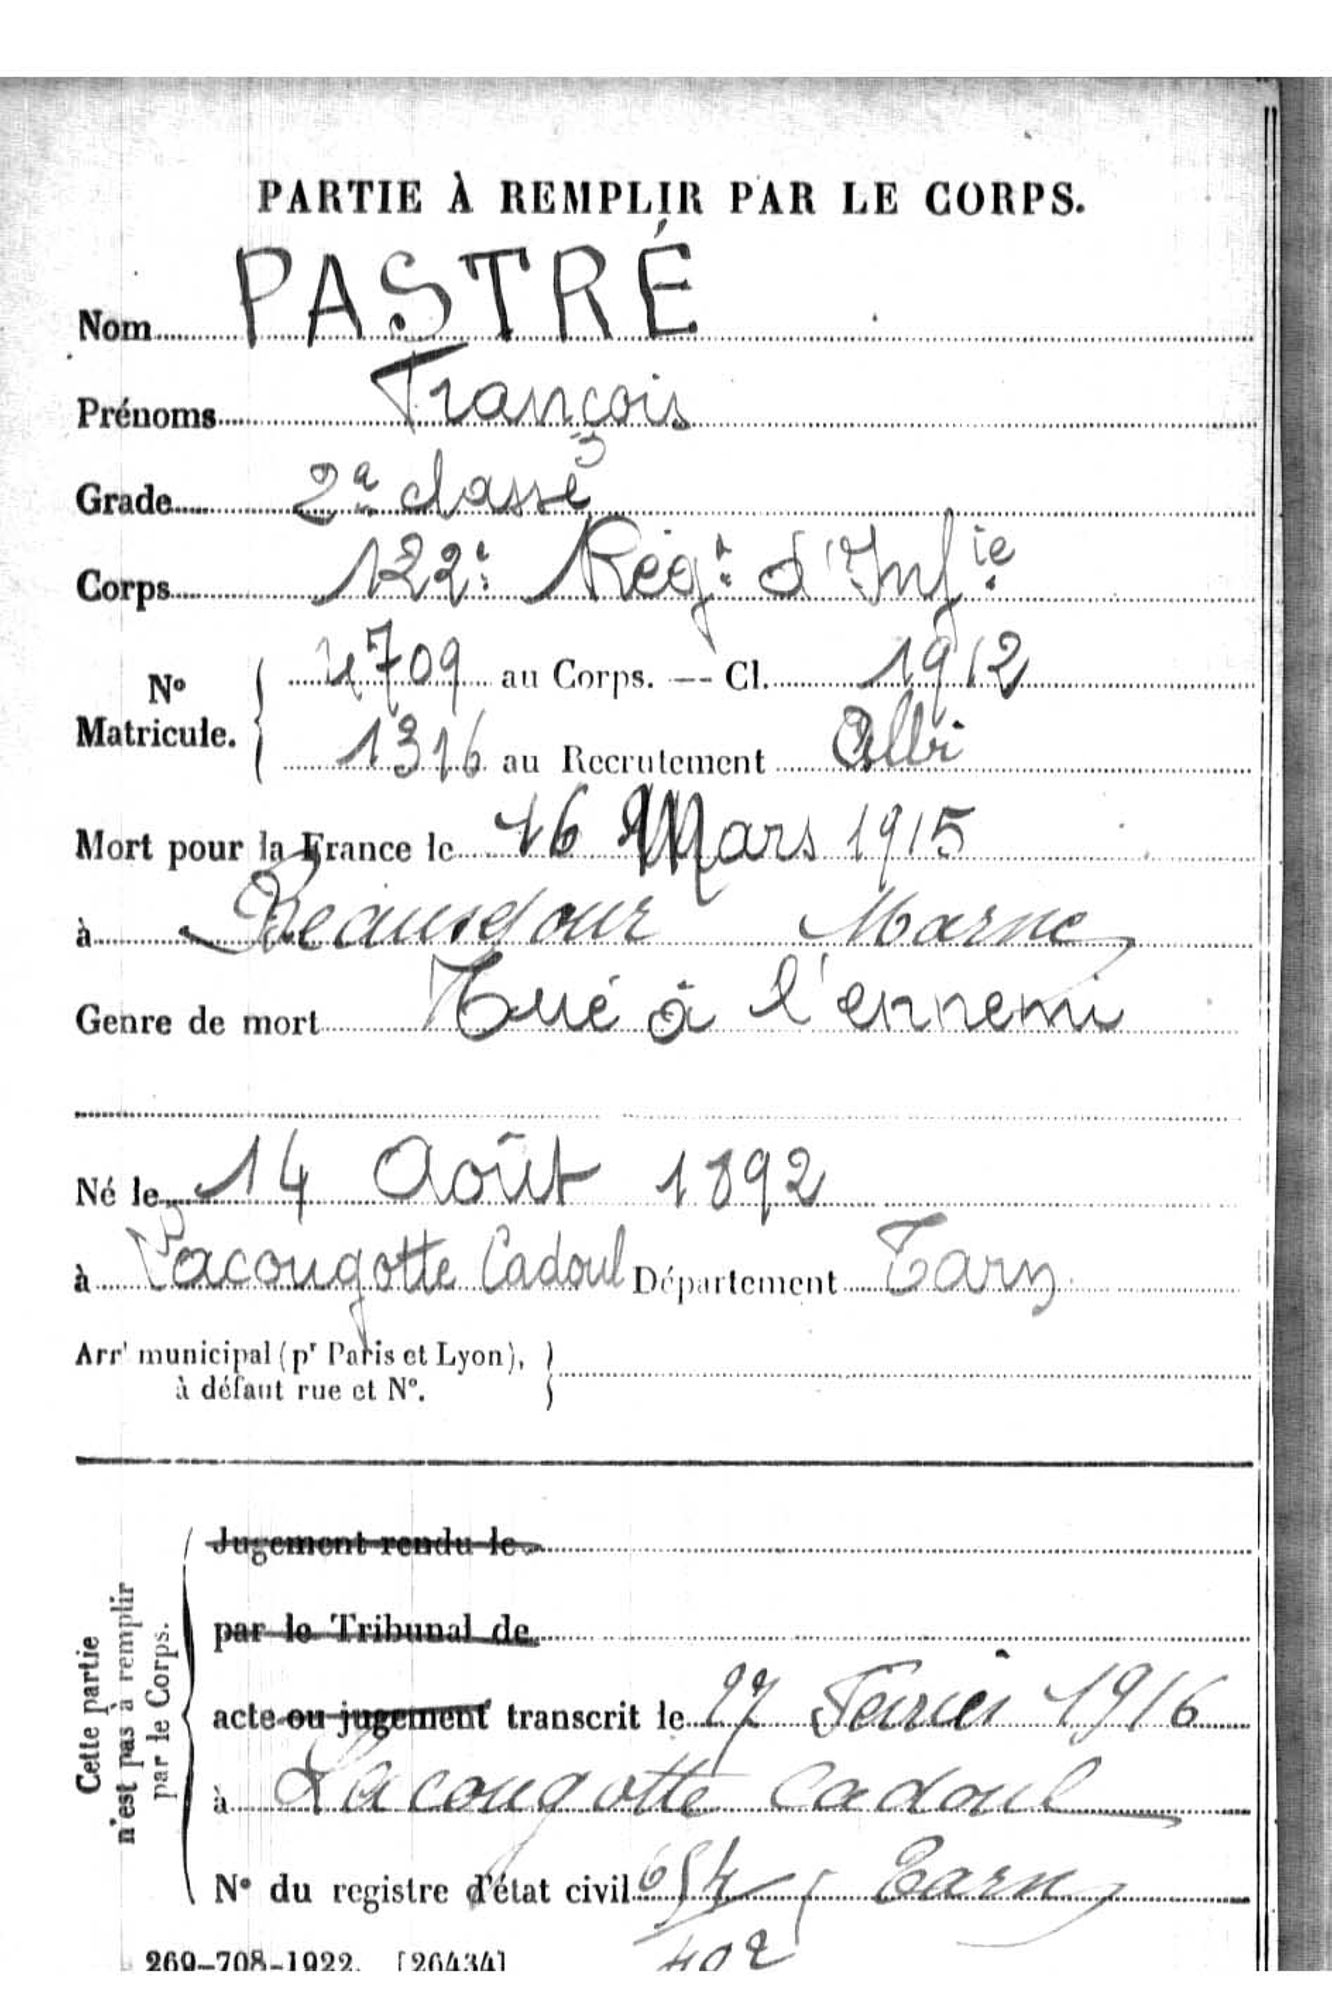 PARTIE À REMPLIR PAR LE CORPS.
Nom PASTRÉ
Prénoms François
Grade 2e classe
Corps 122e Régt d'Infie
N° Matricule. 4709 au Corps. — Cl. 1912
1316 au Recrutement Albi
Mort pour la France le 16 Mars 1915
à Beauséjour Marne
Genre de mort Tué à l'ennemi
Né le 14 Août 1892
à Lacougotte Cadoul Département Tarn
Arrt municipal (pr Paris et Lyon),
à défaut rue et N°.
Cette partie
n'est pas à remplir
par le Corps.
Jugement rendu le
par le Tribunal de
acte ou jugement transcrit le 27 Février 1916
à Lacougotte Cadoul
N° du registre d'état civil 654/402 Tarn
269-708-1922. [26434]